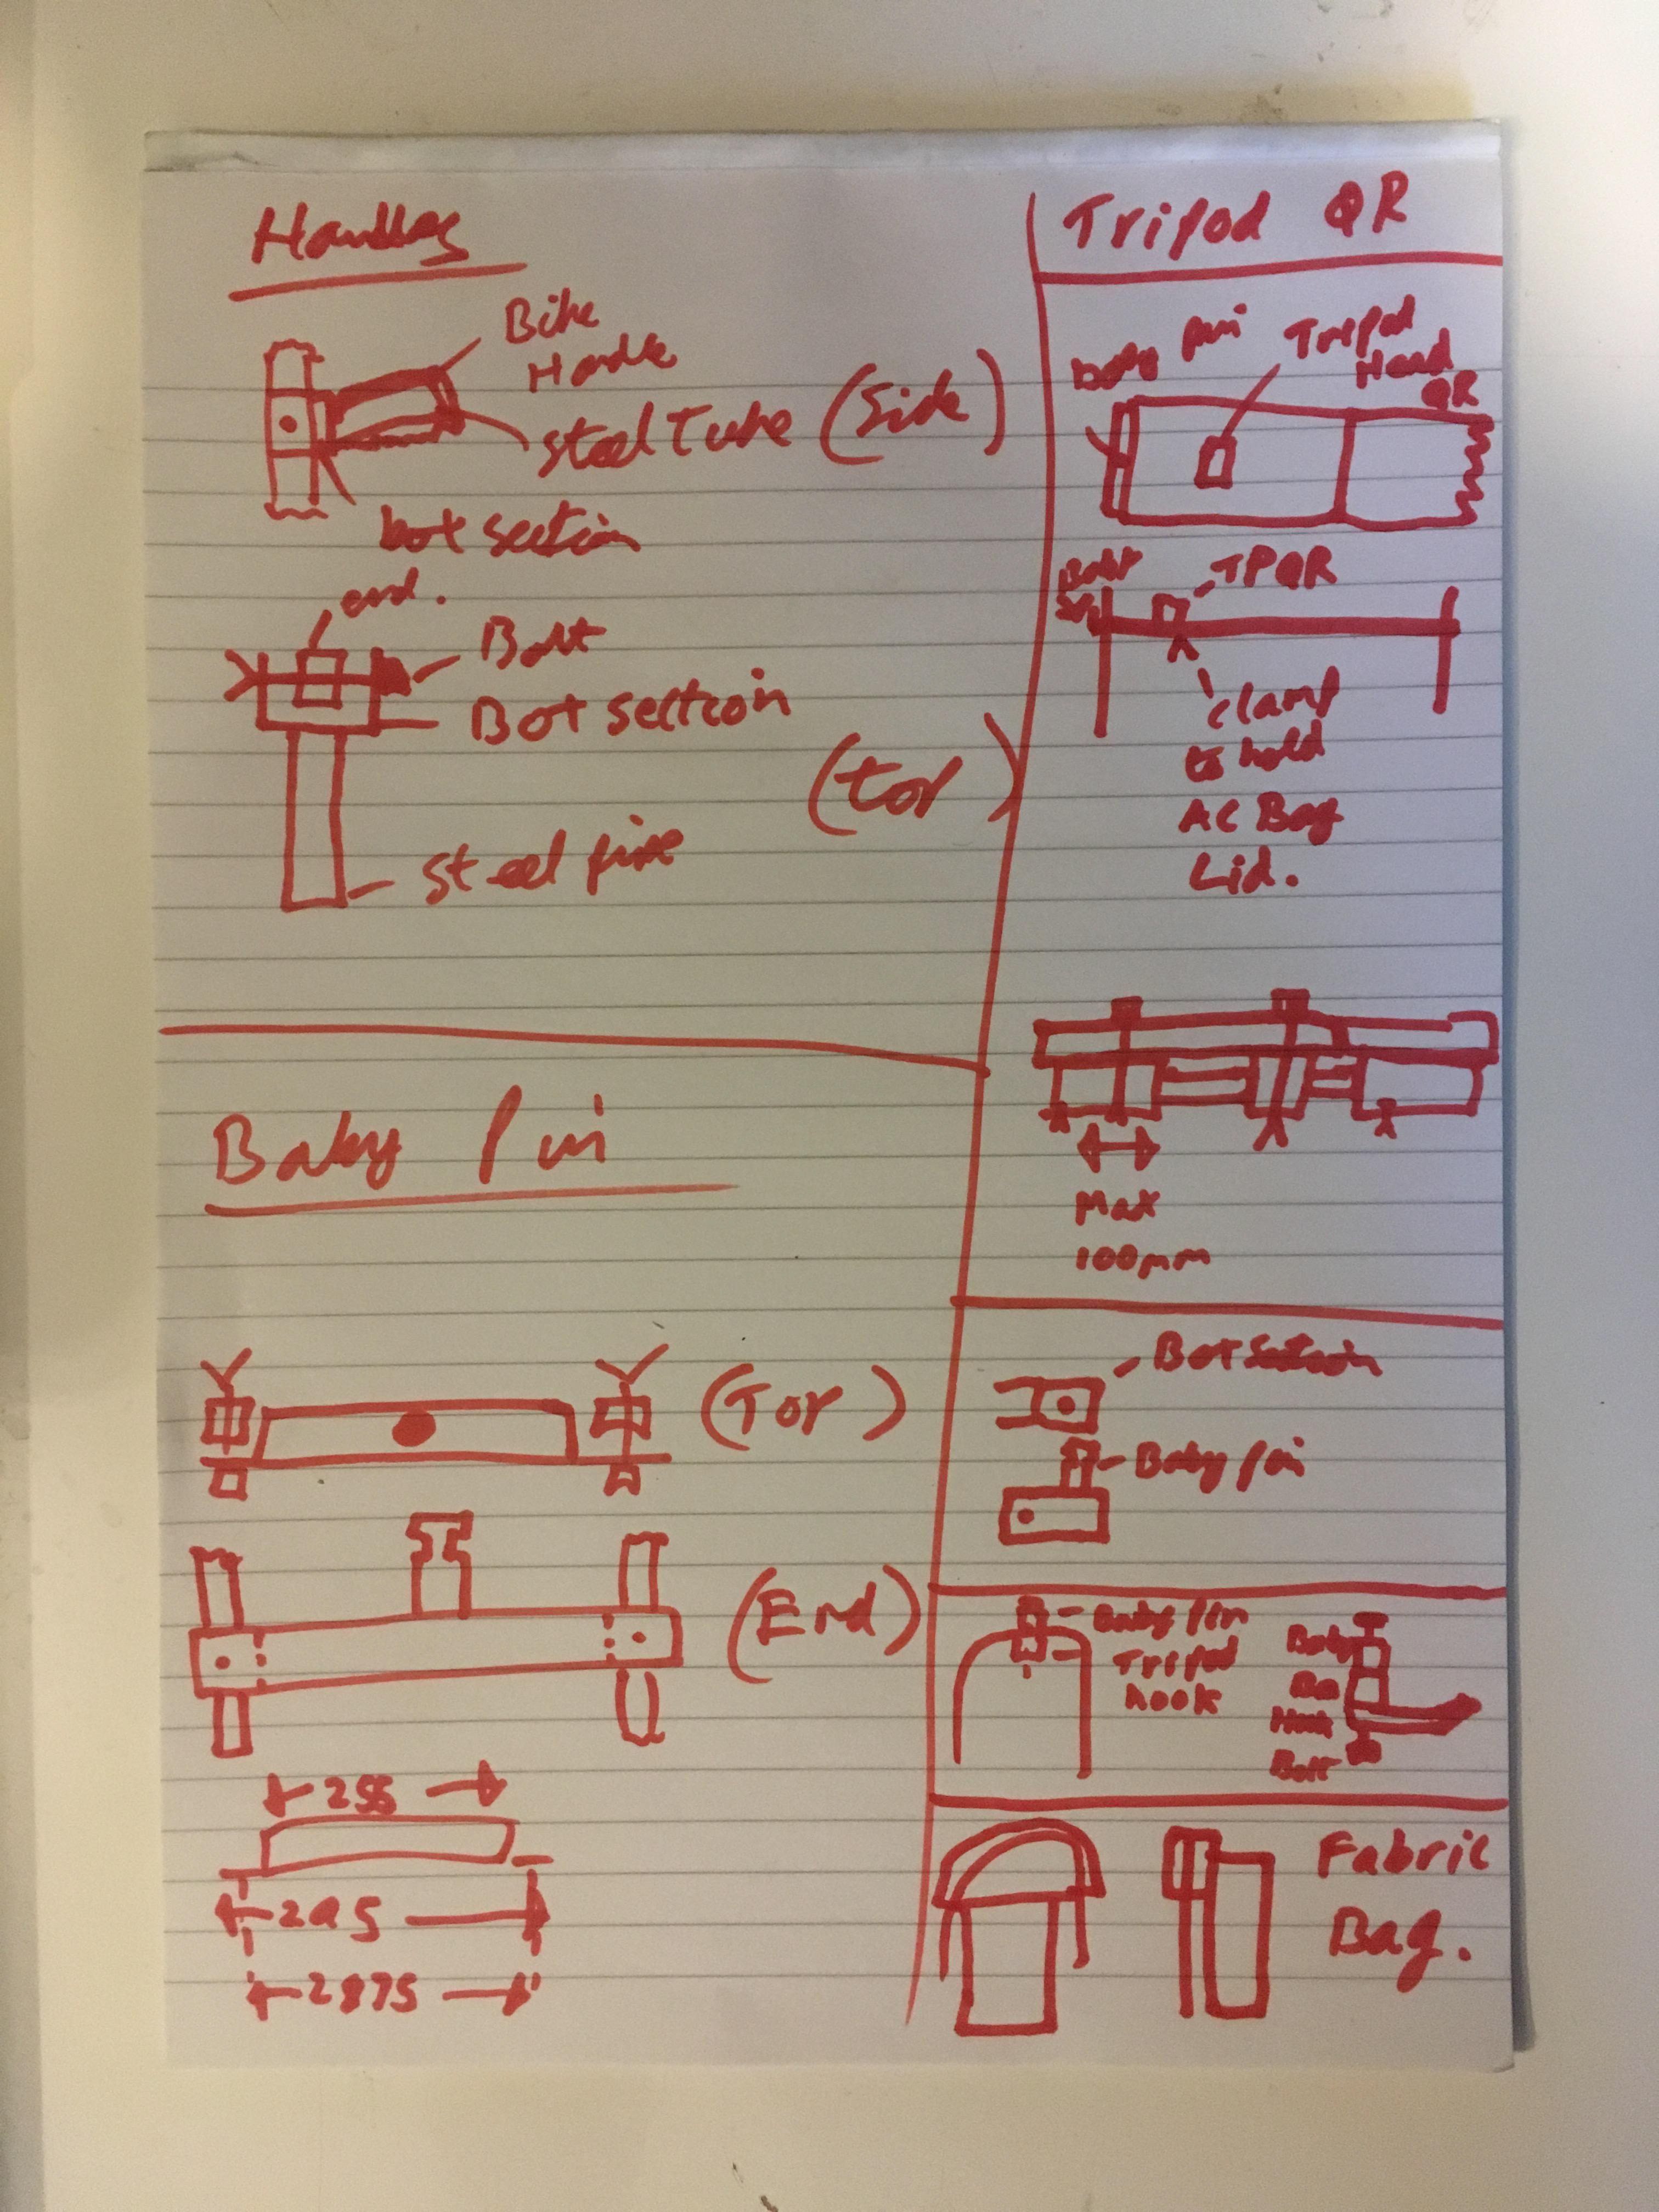 Handles
Bike
Handle
Steel Tube (Side)
bot section
end.
Bolt
Bot section
(Top)
Steel pipe
Baby Pin
(Top)
(End)
255
295
2875
Tripod QR
baby pin
Tripod
Head
QR
Baby
TPQR
clamp
to hold
AC Bag
Lid.
Max
100mm
Bot Section
Baby pin
Baby pin
Tripod
hook
Baby
Hook
Bolt
Fabric
Bag.